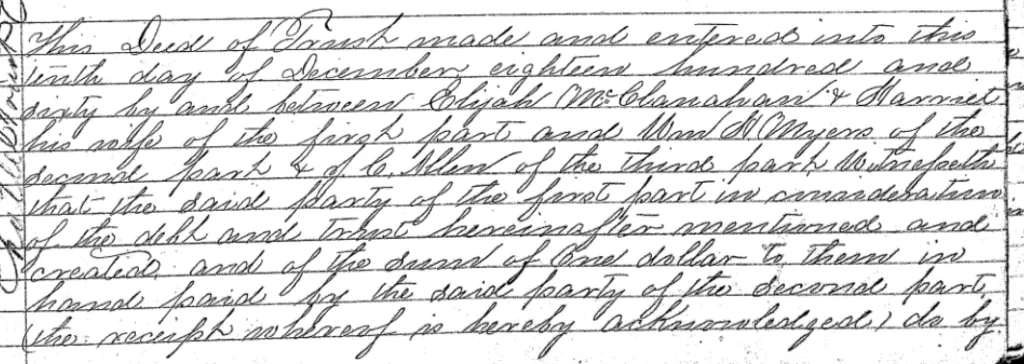 This Deed of Trust made and entered into this
tenth day of December, eighteen hundred and
sixty by and between Elijah McClanahan & Harriet
his wife of the first part and Wm H Myers of the
second part & J. C. Allen of the third part, Witnesseth
that the said party of the first part in consideration
of the debt and trust hereinafter mentioned and
created, and of the sum of One dollar to them in
hand paid by the said party of the second part,
(the receipt whereof is hereby acknowledged) do by